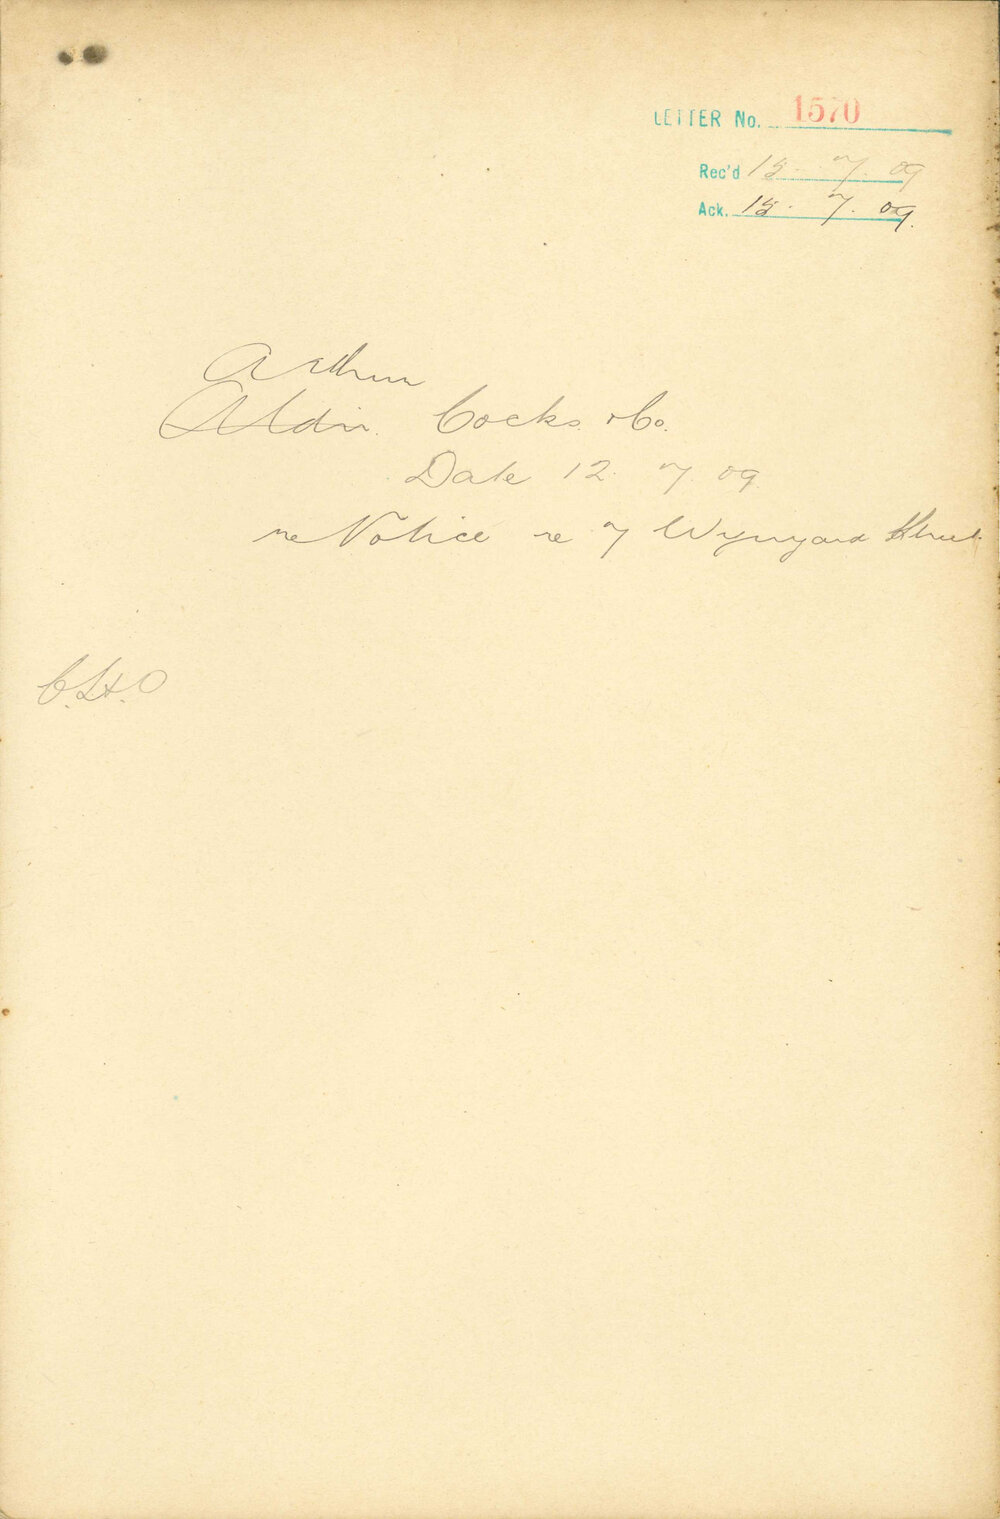 LETTER No. 1570
Rec'd 15. 7. 09
Ack. 15. 7. 09.
Arthur
Aldn. Cocks & Co.
Date 12. 7. 09.
re Notice re 7 Wynyard Street
C.H.O